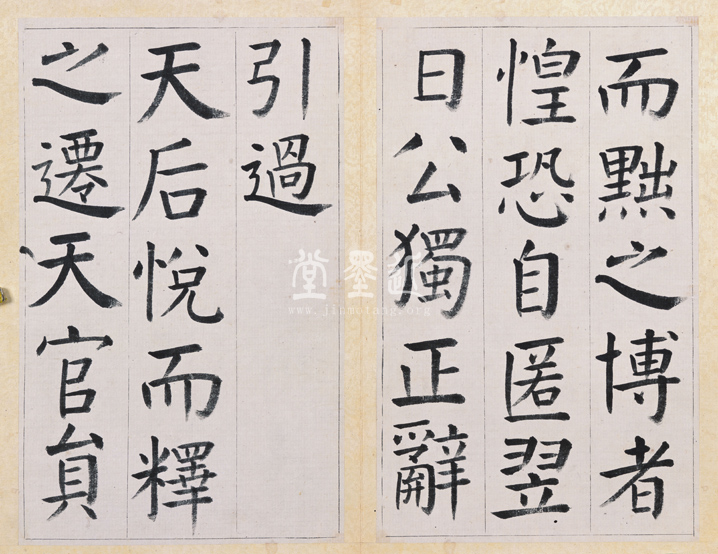 而黜之博者
惶恐自匿翌
日公獨正辭
引過
天后悅而釋
之遷天官員
www.jinmotang.org